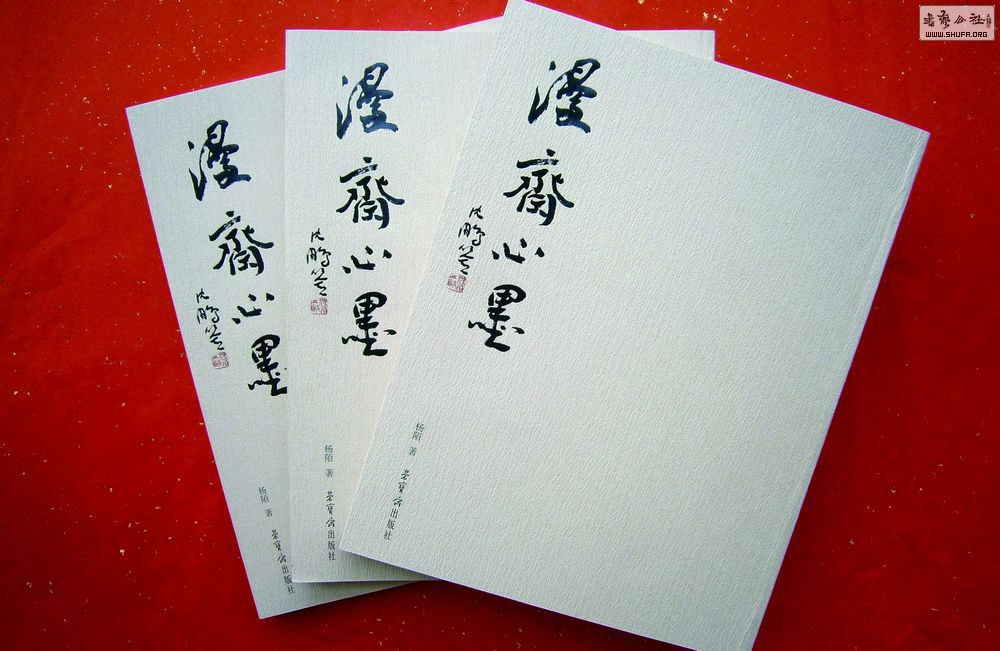 漫齋心墨
沈鵬签
杨陌 著
荣宝斋出版社
漫齋心墨
沈鵬签
杨陌 著
荣宝斋出版社
漫齋心墨
沈鵬签
杨陌 著
荣宝斋出版社
书艺公社
WWW.SHUFA.ORG